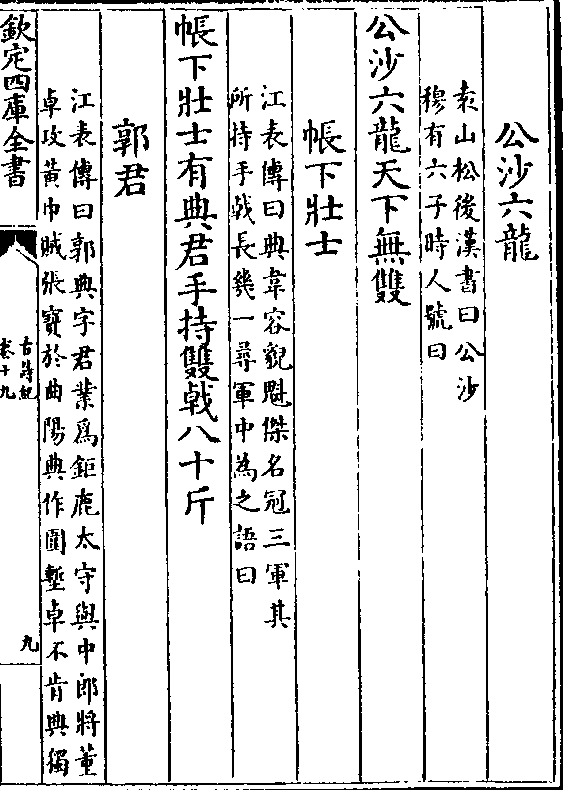 公沙六龍
袁山松後漢書曰公沙
穆有六子時人號曰
公沙六龍天下無雙
帳下壯士
江表傳曰典韋容貌魁傑名冠三軍其
所持手戟長幾一尋軍中為之語曰
帳下壯士有典君手持雙戟八十斤
郭君
江表傳曰郭典字君業爲鉅鹿太守與中郎將董
卓攻黃巾賊張寶於曲陽典作圍塹卓不肯典獨
欽定四庫全書
古詩紀
卷十九
九